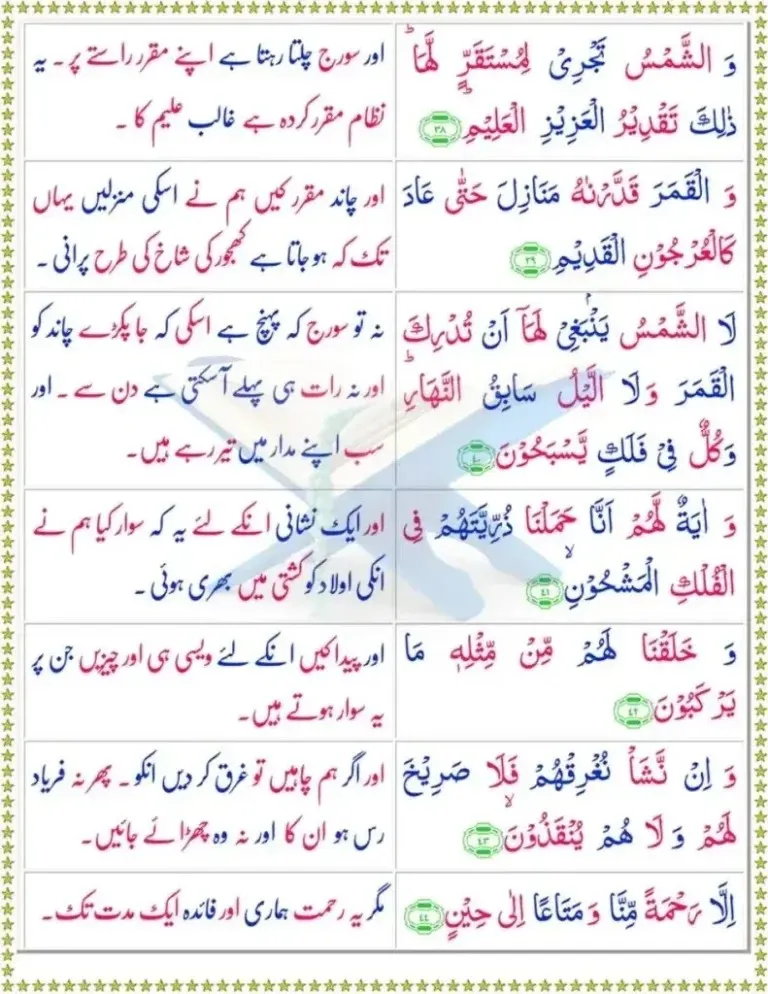 وَ الشَّمْسُ تَجْرِیْ لِمُسْتَقَرٍّ لَّهَا ؕ
ذٰلِكَ تَقْدِیْرُ الْعَزِیْزِ الْعَلِیْمِ ؕ ﴿۳۸﴾
اور سورج چلتا رہتا ہے اپنے مقرر راستے پر۔ یہ
نظام مقرر کردہ ہے غالب علیم کا ۔
وَ الْقَمَرَ قَدَّرْنٰهُ مَنَازِلَ حَتّٰی عَادَ
كَالْعُرْجُوْنِ الْقَدِیْمِ ﴿۳۹﴾
اور چاند مقرر کیں ہم نے اسکی منزلیں یہاں
تک کہ ہو جاتا ہے کھجور کی شاخ کی طرح پرانی ۔
لَا الشَّمْسُ یَنْۢبَغِیْ لَهَاۤ اَنْ تُدْرِكَ
الْقَمَرَ وَ لَا الَّیْلُ سَابِقُ النَّهَارِ ؕ
وَ كُلٌّ فِیْ فَلَكٍ یَّسْبَحُوْنَ ﴿۴۰﴾
نہ تو سورج کہ پہنچ ہے اسکی کہ جا پکڑے چاند کو
اور نہ رات ہی پہلے آ سکتی ہے دن سے ۔ اور
سب اپنے مدار میں تیر رہے ہیں۔
وَ اٰیَةٌ لَّهُمْ اَنَّا حَمَلْنَا ذُرِّیَّتَهُمْ فِی
الْفُلْكِ الْمَشْحُوْنِ ۙ ﴿۴۱﴾
اور ایک نشانی انکے لئے یہ کہ سوار کیا ہم نے
انکی اولاد کو کشتی میں بھری ہوئی ۔
وَ خَلَقْنَا لَهُمْ مِّنْ مِّثْلِهٖ مَا
یَرْكَبُوْنَ ﴿۴۲﴾
اور پیدا کیں انکے لئے ویسی ہی اور چیزیں جن پر
یہ سوار ہوتے ہیں۔
وَ اِنْ نَّشَاْ نُغْرِقْهُمْ فَلَا صَرِیْخَ
لَهُمْ وَ لَا هُمْ یُنْقَذُوْنَ ۙ ﴿۴۳﴾
اور اگر ہم چاہیں تو غرق کر دیں انکو۔ پھر نہ فریاد
رس ہو ان کا اور نہ وہ چھڑائے جائیں۔
اِلَّا رَحْمَةً مِّنَّا وَ مَتَاعًا اِلٰی حِیْنٍ ﴿۴۴﴾
مگر یہ رحمت ہماری اور فائدہ ایک مدت تک۔